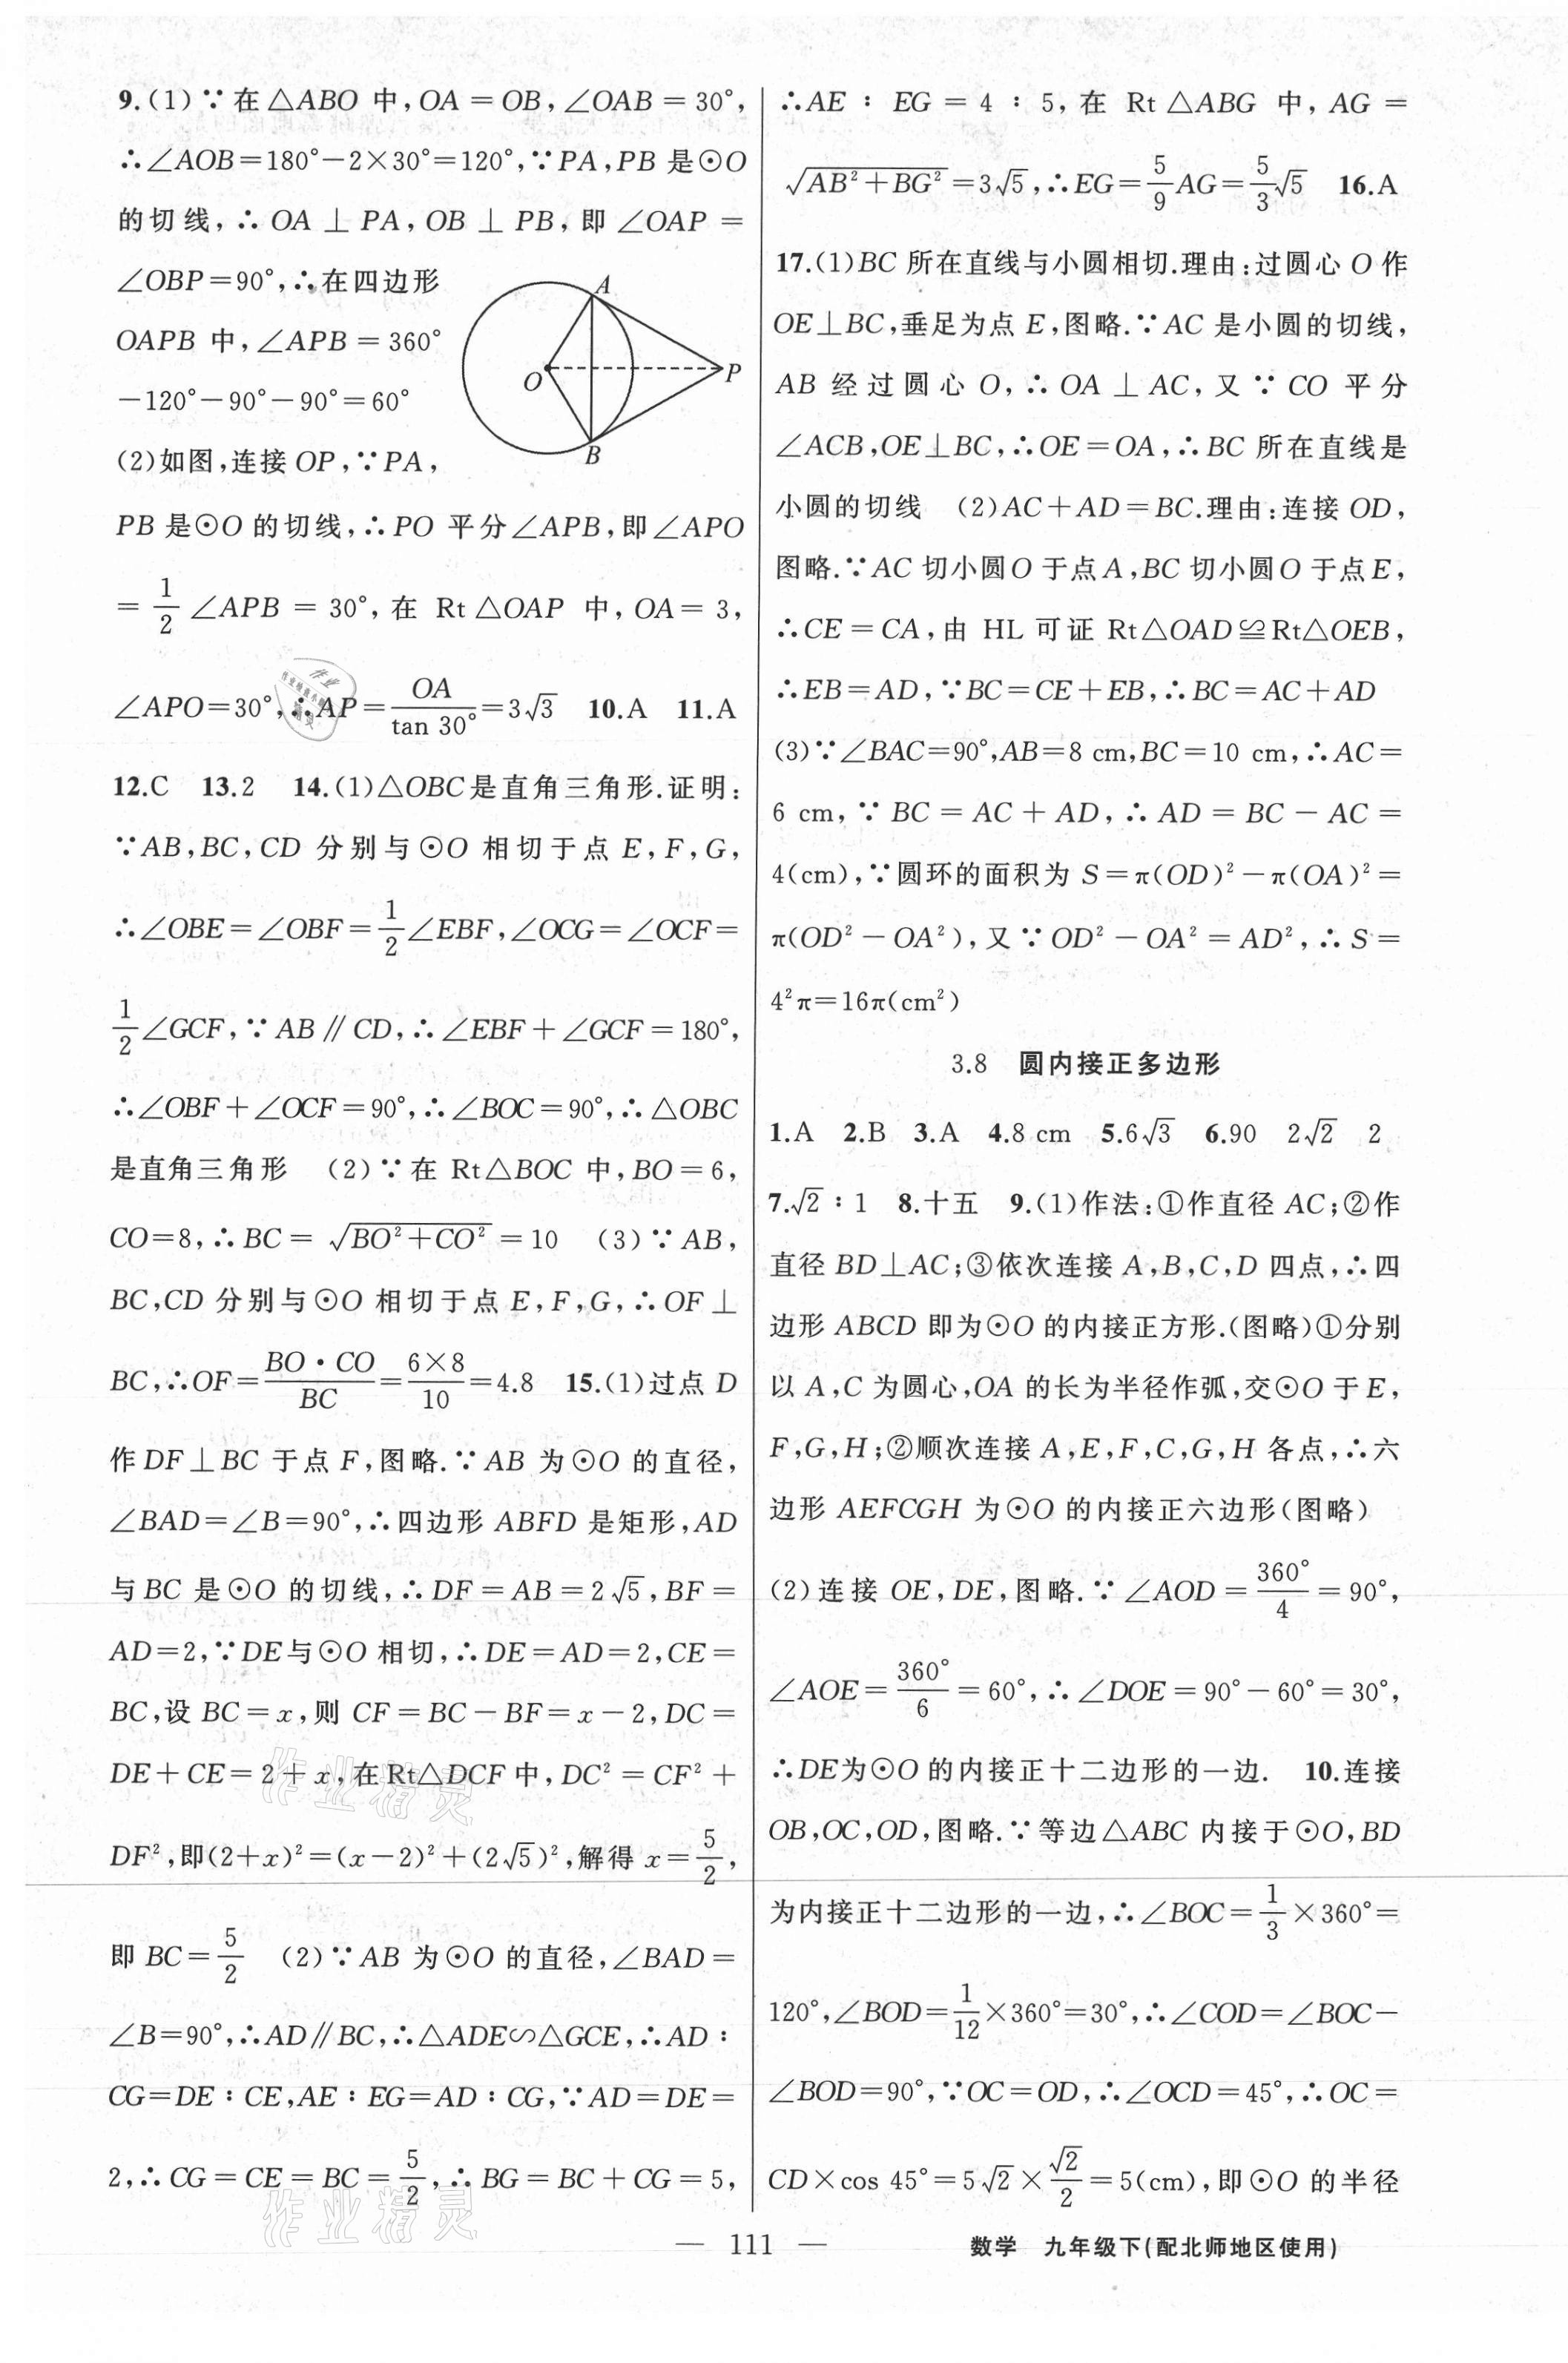 9.(1)∵在△ABO 中,OA=OB,∠OAB=30°,
∴∠AOB=180°-2×30°=120°,∵PA,PB 是⊙O
的切线,∴OA⊥PA,OB⊥PB,即∠OAP=
∠OBP=90°,∴在四边形
OAPB 中,∠APB=360°
-120°-90°-90°=60°
(2)如图,连接 OP,∵PA,
A
O
P
B
PB 是⊙O 的切线,∴PO 平分∠APB,即∠APO
=1/2∠APB=30°,在 Rt△OAP 中,OA=3,
∠APO=30°,∴AP=OA/tan 30°=3√3 10.A 11.A
12.C 13.2 14.(1)△OBC是直角三角形.证明:
∵AB,BC,CD 分别与⊙O 相切于点 E,F,G,
∴∠OBE=∠OBF=1/2∠EBF,∠OCG=∠OCF=
1/2∠GCF,∵AB∥CD,∴∠EBF+∠GCF=180°,
∴∠OBF+∠OCF=90°,∴∠BOC=90°,∴△OBC
是直角三角形 (2)∵在 Rt△BOC 中,BO=6,
CO=8,∴BC=√(BO²+CO²)=10 (3)∵AB,
BC,CD 分别与⊙O 相切于点 E,F,G,∴OF⊥
BC,∴OF=BO·CO/BC=6×8/10=4.8 15.(1)过点 D
作 DF⊥BC 于点 F,图略.∵AB 为⊙O 的直径,
∠BAD=∠B=90°,∴四边形 ABFD 是矩形,AD
与 BC 是⊙O 的切线,∴DF=AB=2√5,BF=
AD=2,∵DE与⊙O 相切,∴DE=AD=2,CE=
BC,设 BC=x,则 CF=BC-BF=x-2,DC=
DE+CE=2+x,在Rt△DCF中,DC²=CF²+
DF²,即(2+x)²=(x-2)²+(2√5)²,解得 x=5/2,
即 BC=5/2 (2)∵AB 为⊙O 的直径,∠BAD=
∠B=90°,∴AD∥BC,∴△ADE∽△GCE,∴AD:
CG=DE:CE,AE:EG=AD:CG,∵AD=DE=
2,∴CG=CE=BC=5/2,∴BG=BC+CG=5,
∴AE:EG=4:5,在 Rt△ABG 中,AG=
√(AB²+BG²)=3√5,∴EG=5/9AG=5/3√5 16.A
17.(1)BC 所在直线与小圆相切.理由:过圆心 O 作
OE⊥BC,垂足为点 E,图略.∵AC 是小圆的切线,
AB 经过圆心 O,∴OA⊥AC,又∵CO 平分
∠ACB,OE⊥BC,∴OE=OA,∴BC 所在直线是
小圆的切线 (2)AC+AD=BC.理由:连接 OD,
图略.∵AC 切小圆O 于点A,BC 切小圆O 于点E,
∴CE=CA,由 HL 可证 Rt△OAD≌Rt△OEB,
∴EB=AD,∵BC=CE+EB,∴BC=AC+AD
(3)∵∠BAC=90°,AB=8 cm,BC=10 cm,∴AC=
6 cm,∵BC=AC+AD,∴AD=BC-AC=
4(cm),∵圆环的面积为 S=π(OD)²-π(OA)²=
π(OD²-OA²),又∵OD²-OA²=AD²,∴S=
4²π=16π(cm²)
3.8 圆内接正多边形
1.A 2.B 3.A 4.8 cm 5.6√3 6.90 2√2 2
7.√2:1 8.十五 9.(1)作法:①作直径 AC;②作
直径 BD⊥AC;③依次连接 A,B,C,D 四点,∴四
边形 ABCD 即为⊙O 的内接正方形.(图略)①分别
以 A,C 为圆心,OA 的长为半径作弧,交⊙O 于 E,
F,G,H;②顺次连接 A,E,F,C,G,H 各点,∴六
边形 AEFCGH 为⊙O 的内接正六边形(图略)
(2)连接 OE,DE,图略.∵∠AOD=360°/4=90°,
∠AOE=360°/6=60°,∴∠DOE=90°-60°=30°,
∴DE为⊙O 的内接正十二边形的一边. 10.连接
OB,OC,OD,图略.∵等边△ABC 内接于⊙O,BD
为内接正十二边形的一边,∴∠BOC=1/3×360°=
120°,∠BOD=1/12×360°=30°,∴∠COD=∠BOC-
∠BOD=90°,∵OC=OD,∴∠OCD=45°,∴OC=
CD×cos 45°=5√2×√2/2=5(cm),即⊙O 的半径
作业精灵
作业精灵
— 111 —
数学 九年级下(配北师地区使用)